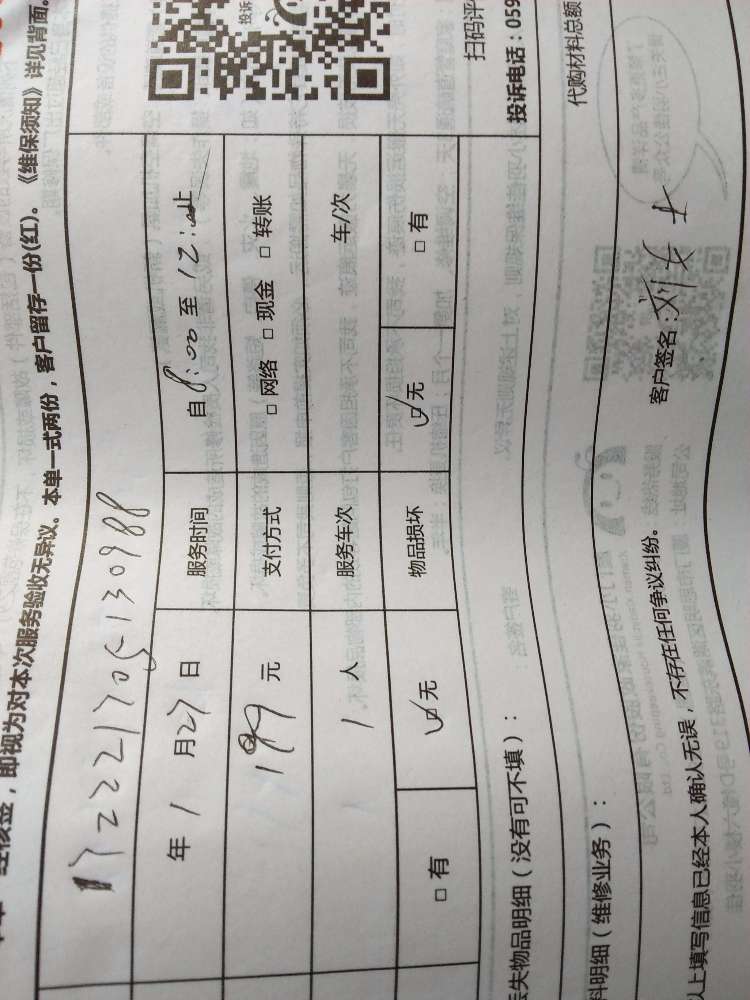 经核签，即视为对本次服务验收无异议。本单一式两份，客户留存一份(红)。《维保须知》详见背面。
投诉
1722221705130988
年1月27日 服务时间 自8:00至12:止
199元 支付方式 □网络 □现金 □转账
1人 服务车次 车/次
□有 ☑无 物品损坏 ☑无 □有
失物品明细（没有可不填）：
扫码评
投诉电话：059
料明细（维修业务）：
代购材料总额
以上填写信息已经本人确认无误，不存在任何争议纠纷。 客户签名：刘